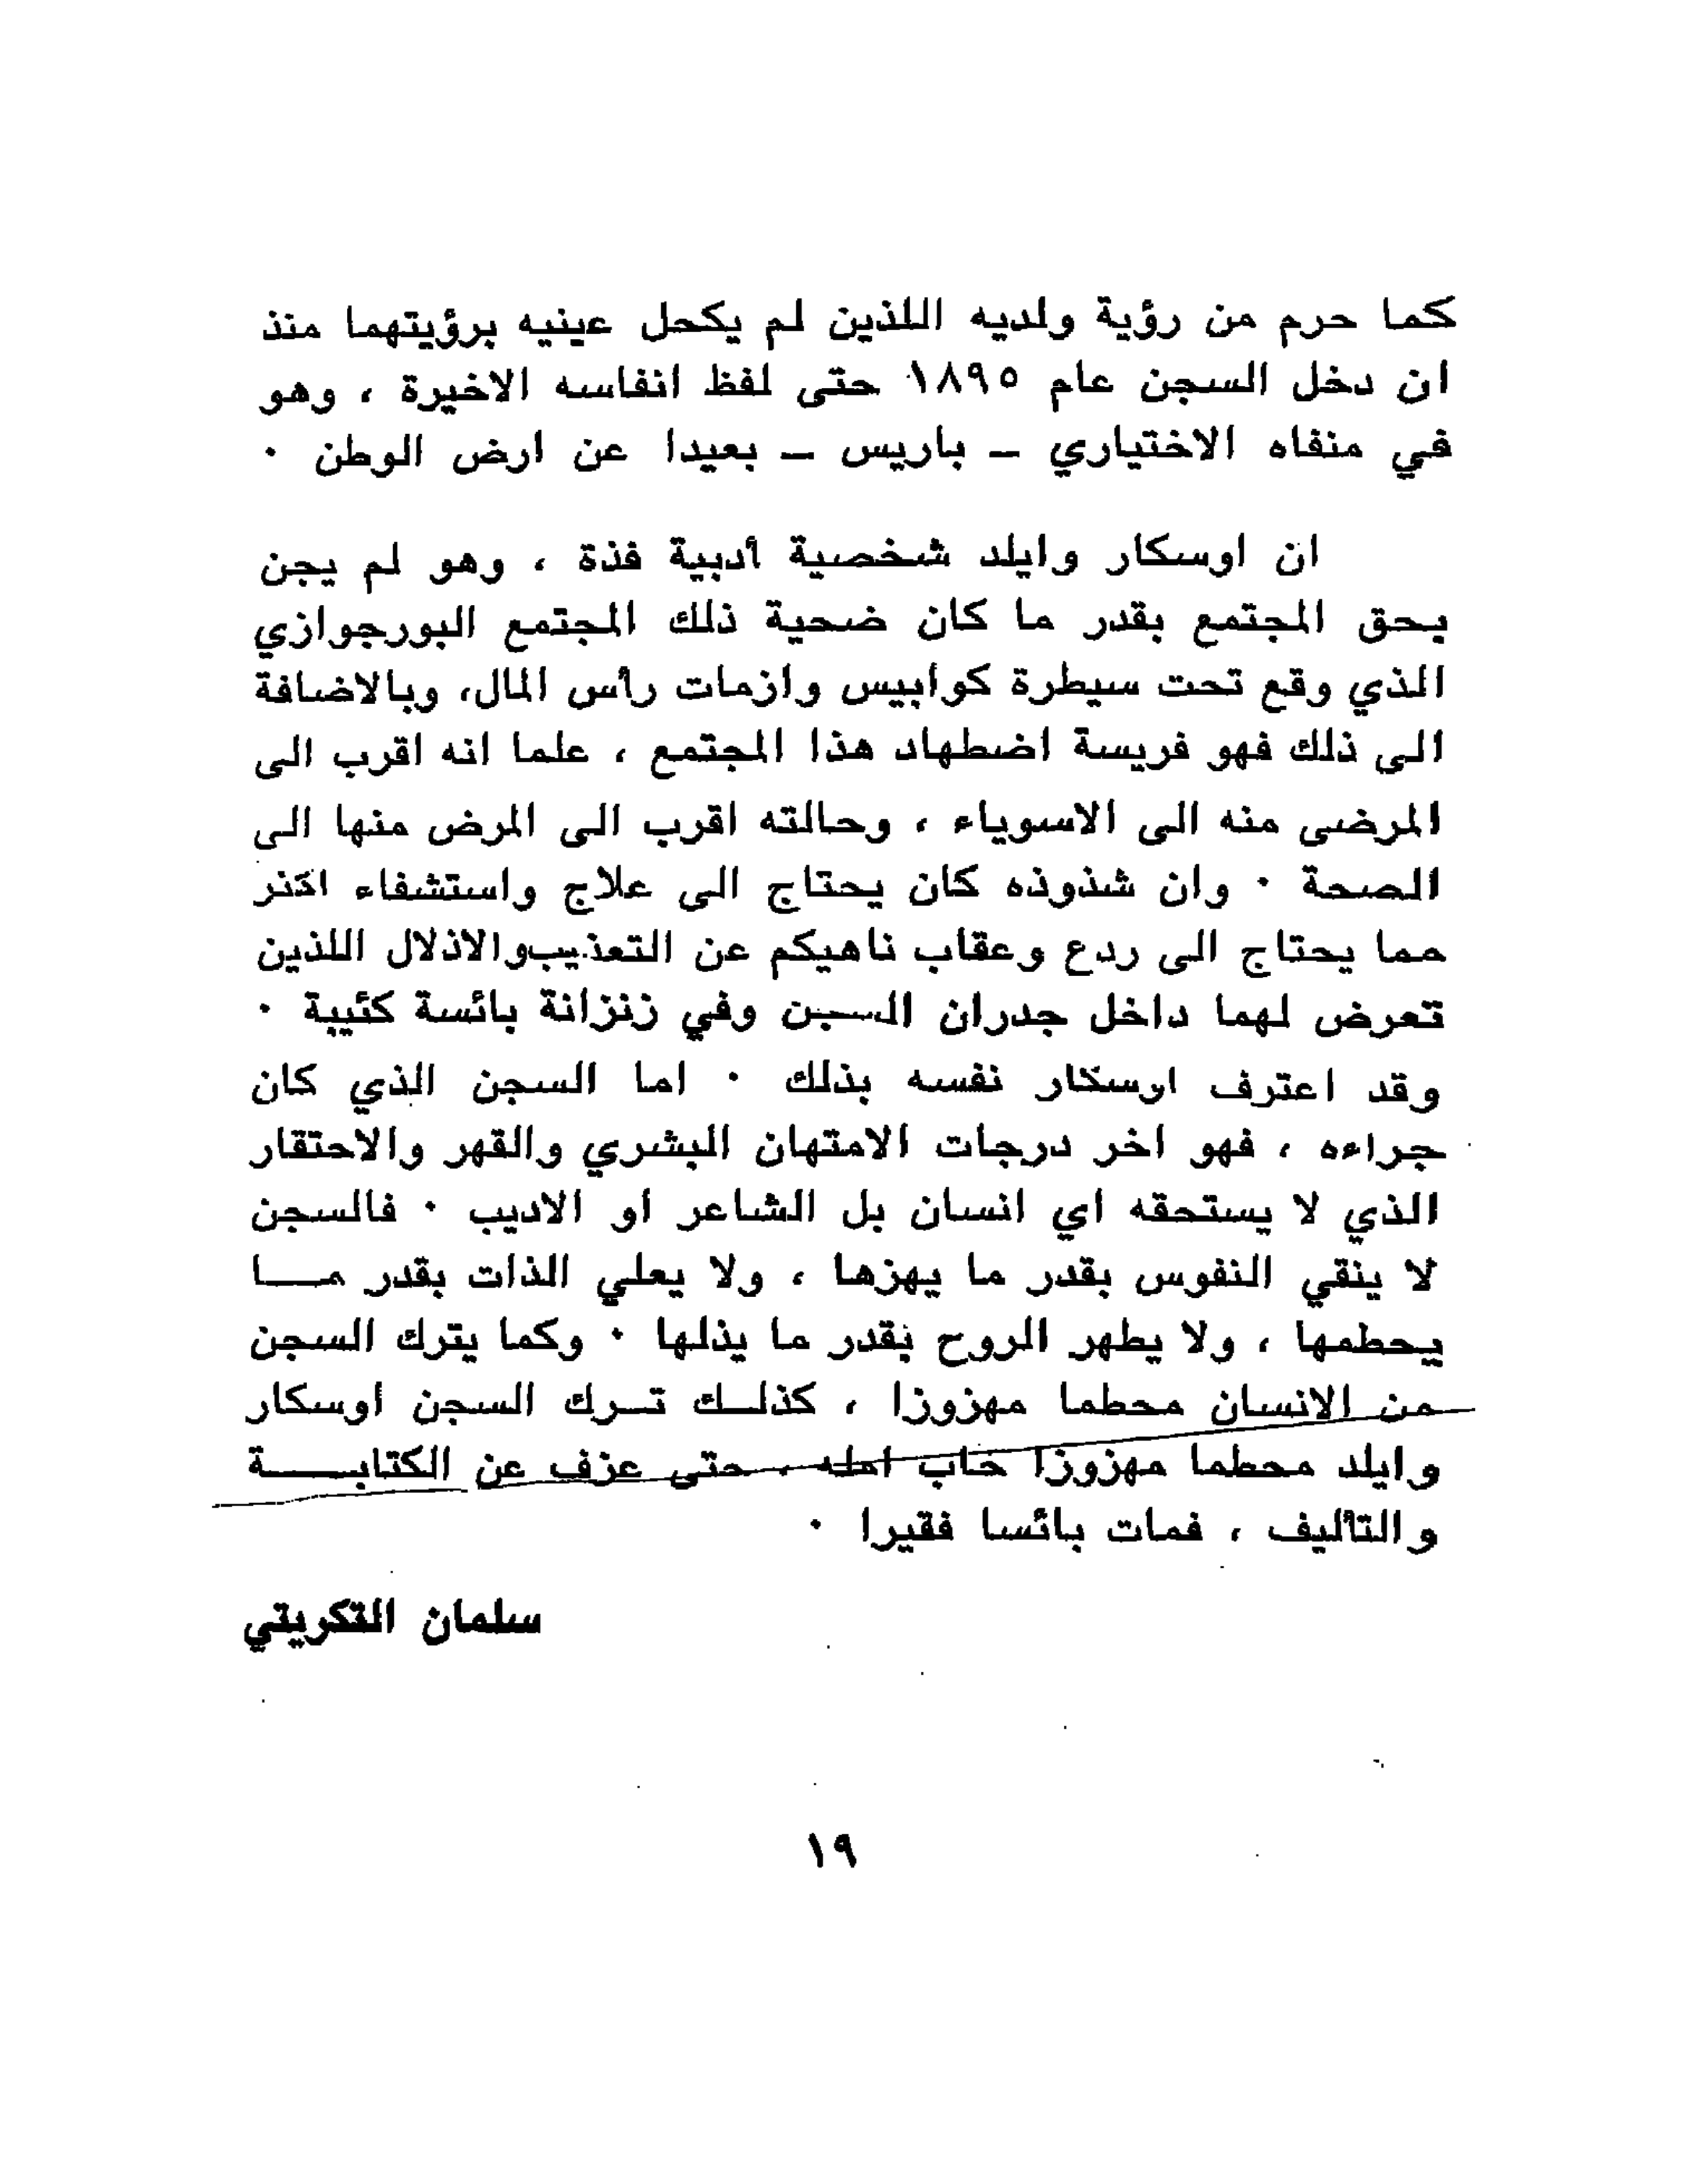 كما حرم من رؤية ولديه اللذين لم يكحل عينيه برؤيتهما منذ
ان دخل السجن عام ١٨٩٥ حتى لفظ انفاسه الاخيرة ، وهو
في منفاه الاختياري ـ باريس ـ بعيدا عن ارض الوطن ٠
ان اوسكار وايلد شخصية أدبية فذة ، وهو لم يجن
بحق المجتمع بقدر ما كان ضحية ذلك المجتمع البورجوازي
الذي وقع تحت سيطرة كوابيس وازمات رأس المال، وبالاضافة
الى ذلك فهو فريسة اضطهاد هذا المجتمع ، علما انه اقرب الى
المرضى منه الى الاسوياء ، وحالته اقرب الى المرض منها الى
الصحة ٠ وان شذوذه كان يحتاج الى علاج واستشفاء اكثر
مما يحتاج الى ردع وعقاب ناهيكم عن التعذيب والاذلال اللذين
تعرض لهما داخل جدران السجن وفي زنزانة بائسة كئيبة ٠
وقد اعترف اوسكار نفسه بذلك ٠ اما السجن الذي كان
جراءه ، فهو اخر درجات الامتهان البشري والقهر والاحتقار
الذي لا يستحقه اي انسان بل الشاعر او الاديب ٠ فالسجن
لا ينقي النفوس بقدر ما يهزها ، ولا يعلي الذات بقدر مـــا
يحطمها ، ولا يطهر الروح بقدر ما يذلها ٠ وكما يترك السجن
من الانسان محطما مهزوزا ، كذلـك تـرك السجن اوسكار
وايلد محطما مهزوزا خاب امله ، حتى عزف عن الكتابـــة
والتأليف ، فمات بائسا فقيرا ٠
سلمان التكريتي
١٩